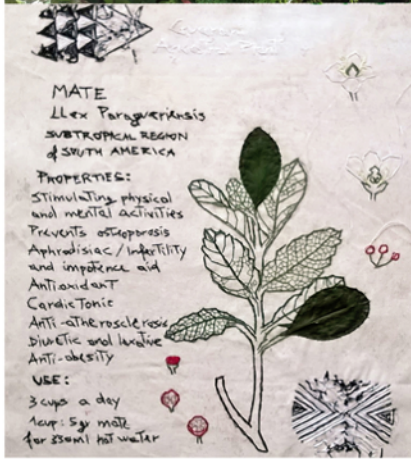 MATE
LLex Paragueriensis
SUBTROPICAL REGION
of SOUTH AMERICA
PROPERTIES:
Stimulating physical
and mental activities
Prevents osteoporosis
Aphrodisiac / Infertility
and impotence aid
Antioxidant
Cardic Tonic
Anti-atherosclerosis
Diuretic and laxative
Anti-obesity
USE:
3 cups a day
1 cup: 5gr mate
for 330ml hot water